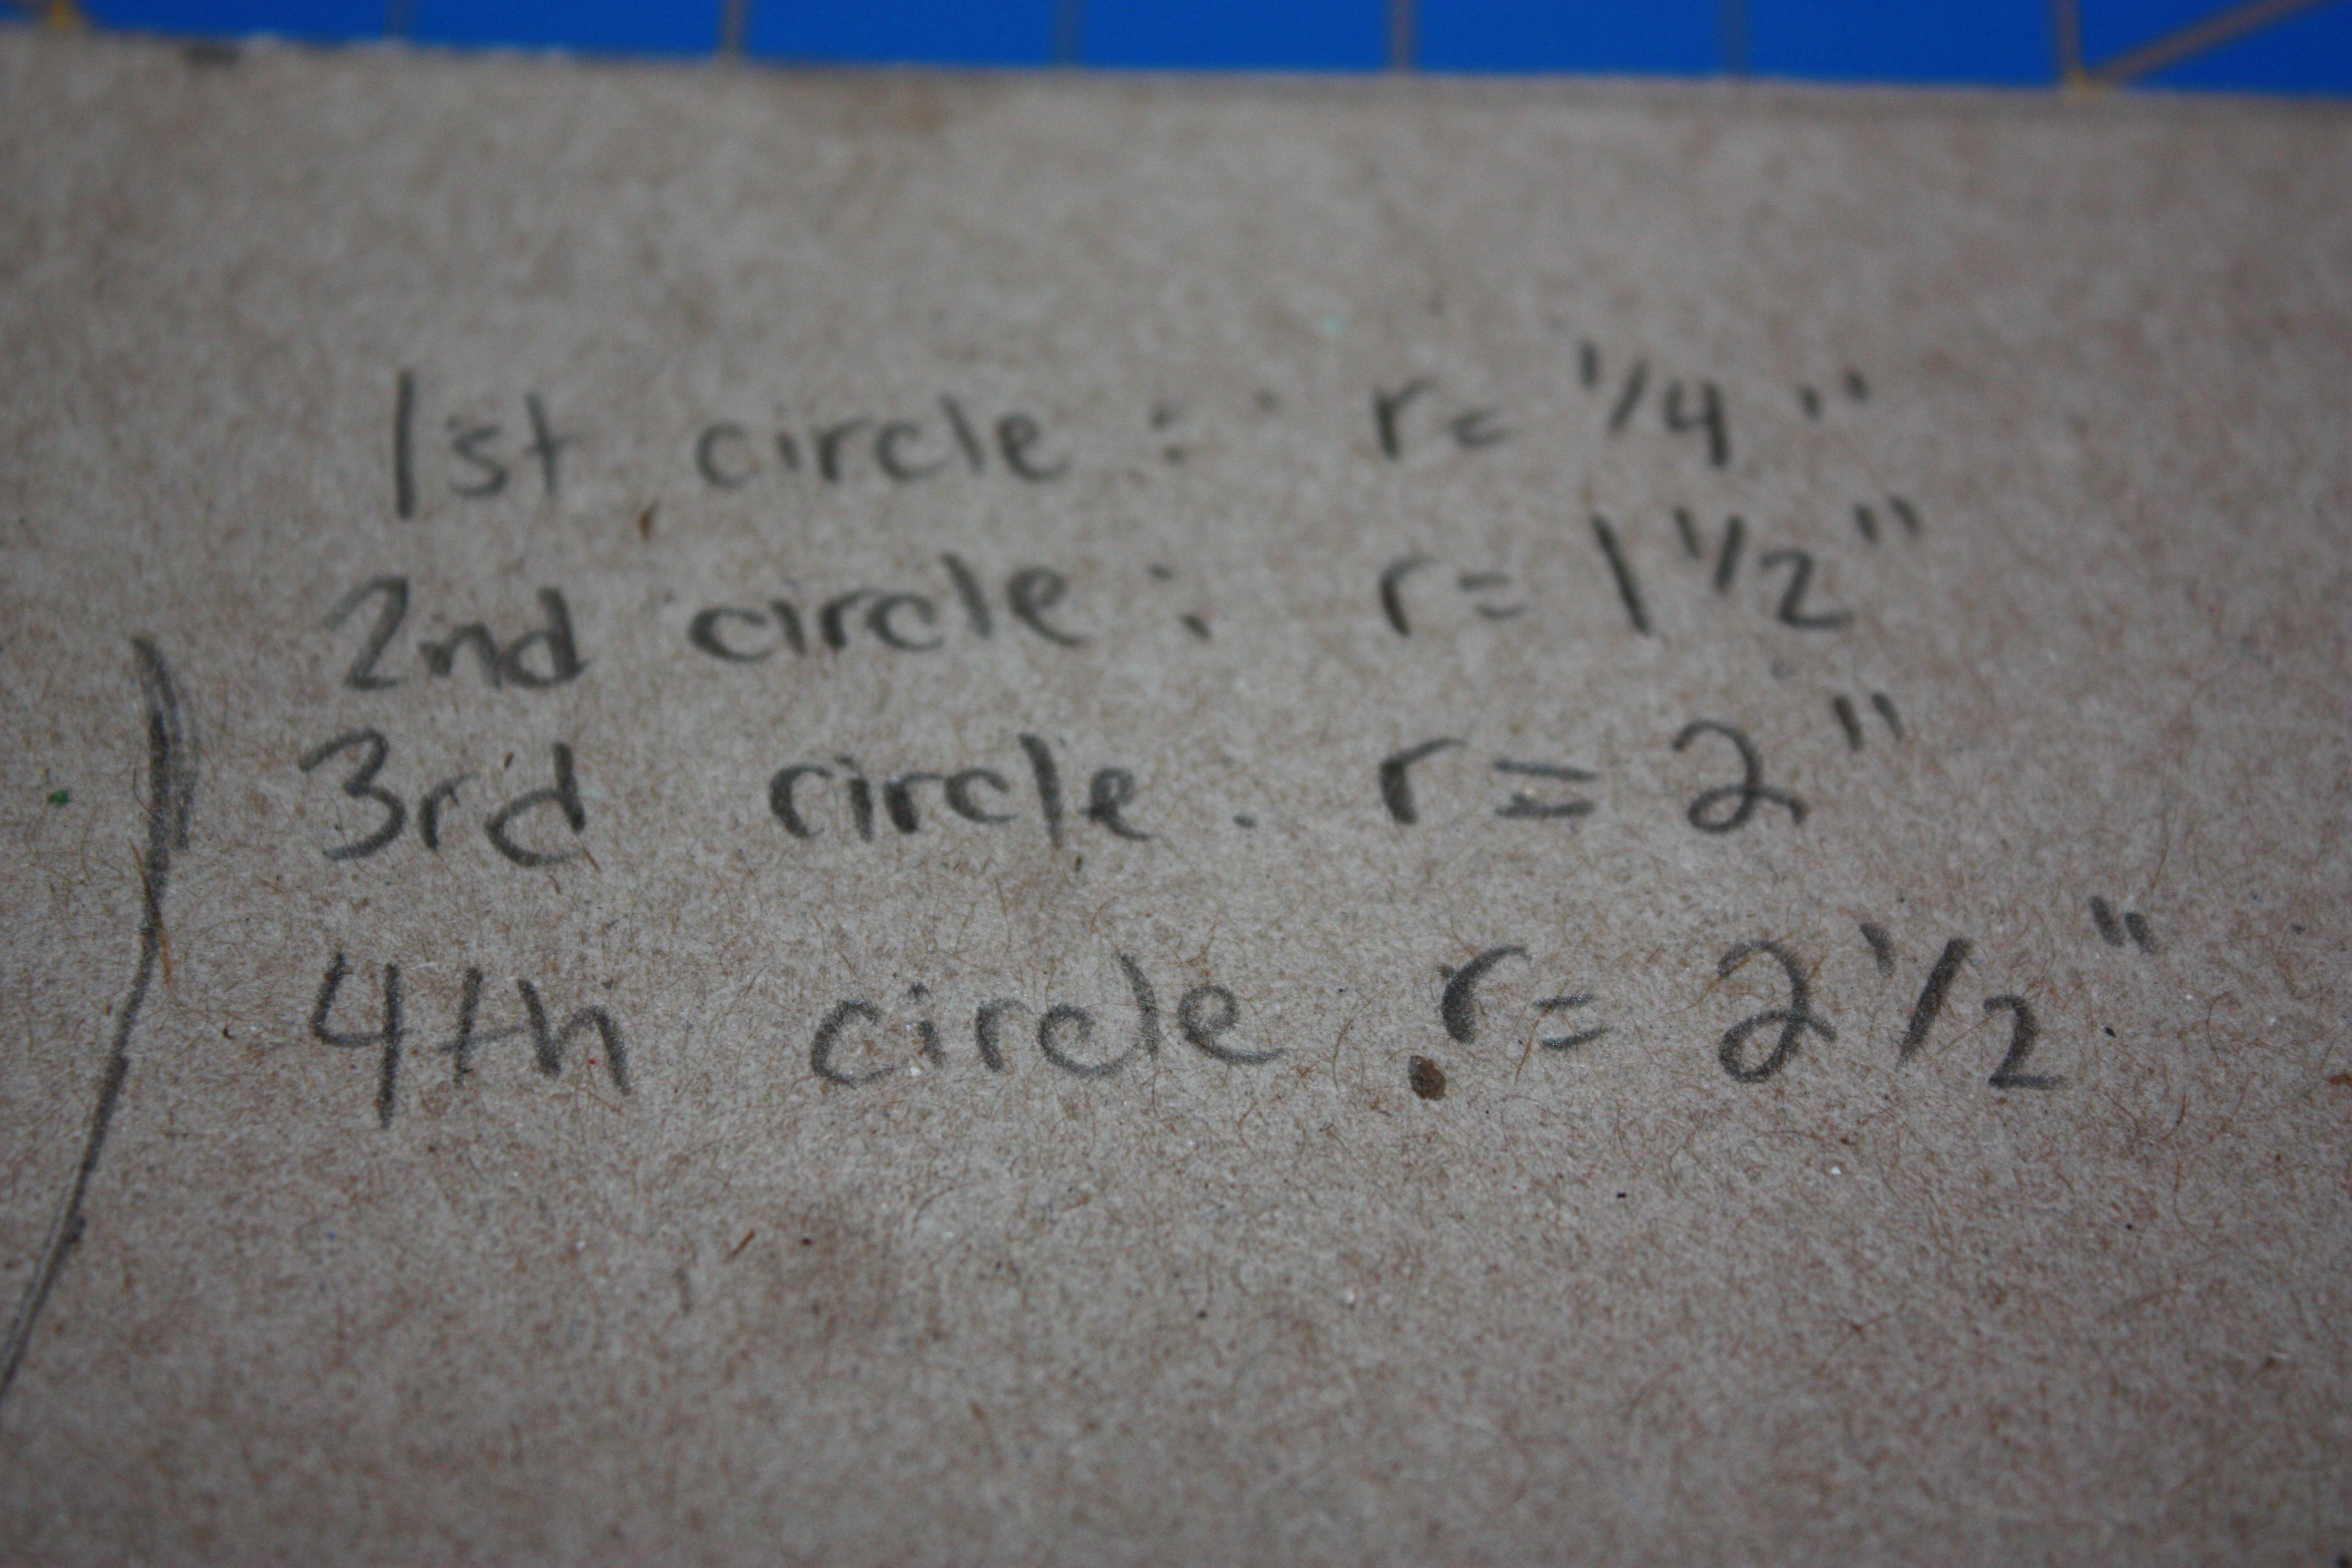 1st circle: r= 1/4"
2nd circle: r= 1 1/2"
3rd circle. r= 2"
4th circle r= 2 1/2"